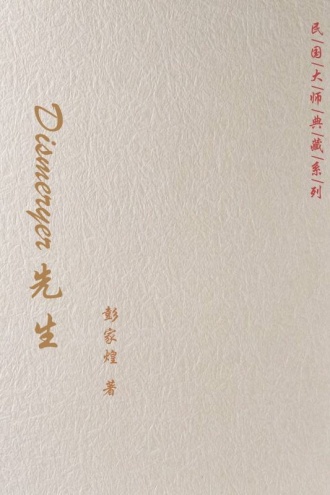 民国大师典藏系列
Dismeryer 先生
彭家煌 著